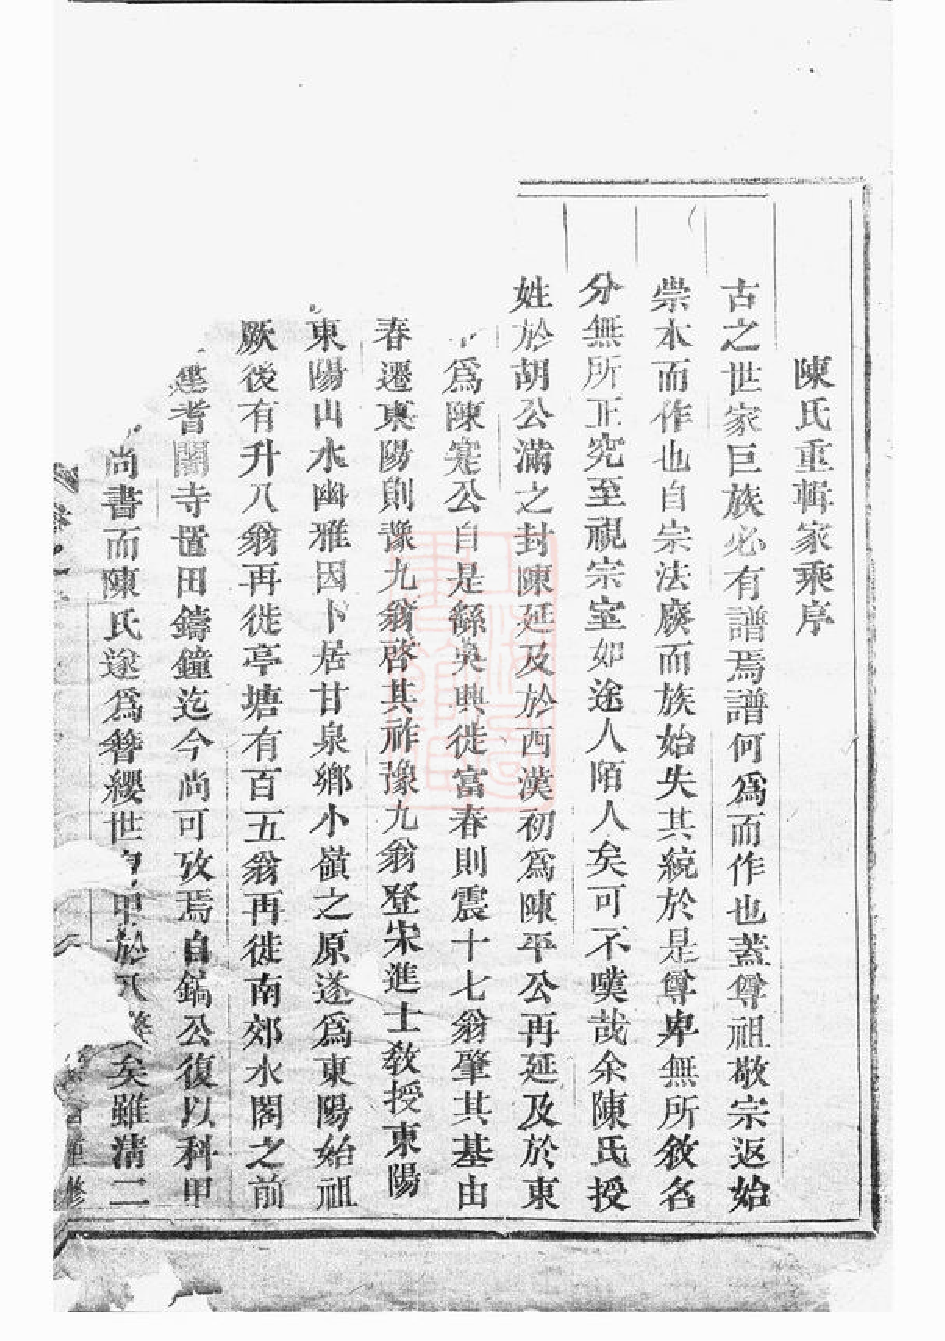 陳氏重輯家乘序
古之世家巨族必有譜焉譜何為而作也蓋尊祖敬宗返始
崇本而作也自宗法廢而族始失其統於是尊卑無所敘名
分無所正究至視宗室如途人陌人矣可不嘆哉余陳氏授
姓於胡公滿之封陳延及於西漢初為陳平公再延及於東
為陳寔公自是繇吳興徙富春則震十七翁肇其基由
春遷東陽則豫九翁啓其祚豫九翁登宋進士教授東陽
東陽山水幽雅因卜居甘泉鄉小嶺之原遂為東陽始祖
厥後有升八翁再徙亭塘有百五翁再徙南郊水閣之前
建耆闍寺置田鑄鐘迄今尚可攷焉自鎬公復以科甲
尚書而陳氏遂為簪纓世
甲於
矣雖清二
修